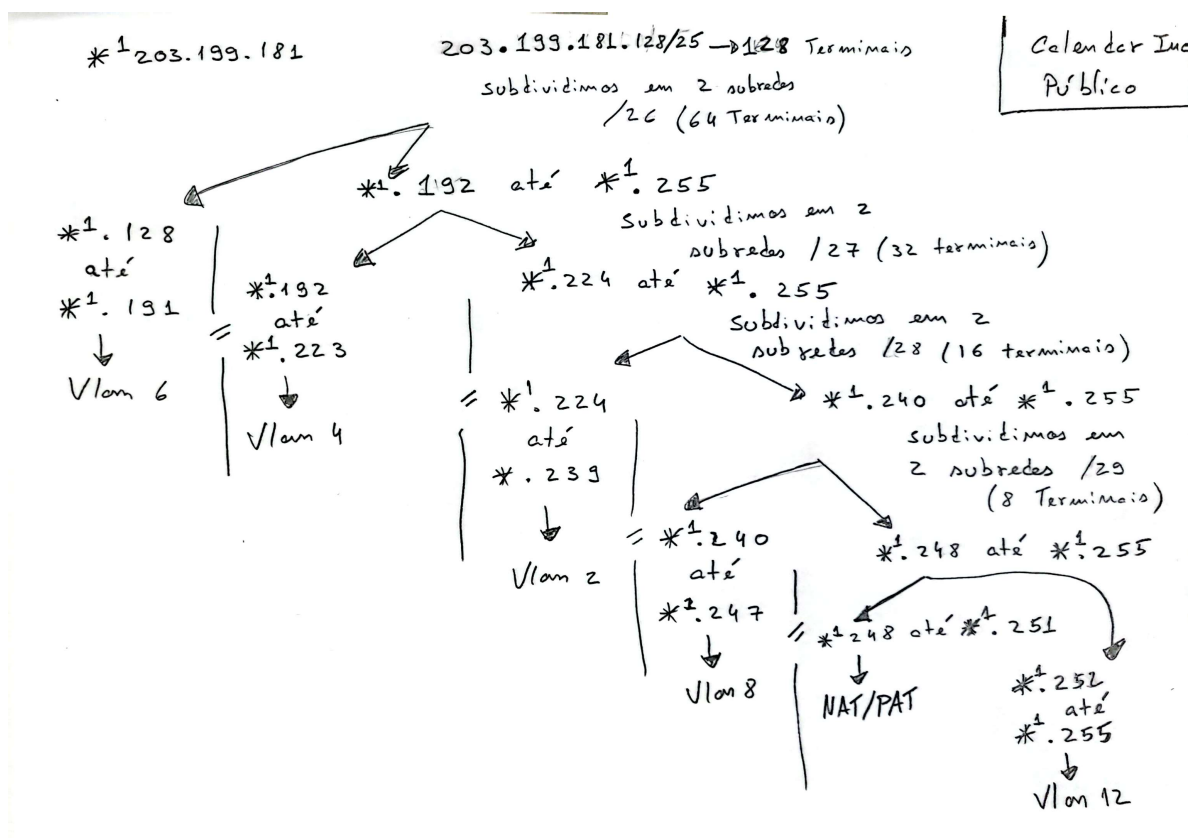 *1 203.199.181
203.199.181.128/25 → 128 Terminais
subdividimos em 2 subredes
/26 (64 Terminais)
Calendar
Público
*1. 192 até *1. 255
subdividimos em 2
subredes /27 (32 terminais)
*1. 128
até
*1. 191
Vlan 6
*1.192
até
*1.223
Vlan 4
*1.224 até *1. 255
Subdividimos em 2
subredes /28 (16 terminais)
*1. 224
até
*. 239
Vlan 2
*1.240 até *1. 255
subdividimos em
2 subredes /29
(8 Terminais)
*1.240
até
*1.247
Vlan 8
*1.248 até *1.255
*1 248 até *1. 251
NAT/PAT
*1.252
até
*1.255
Vlan 12